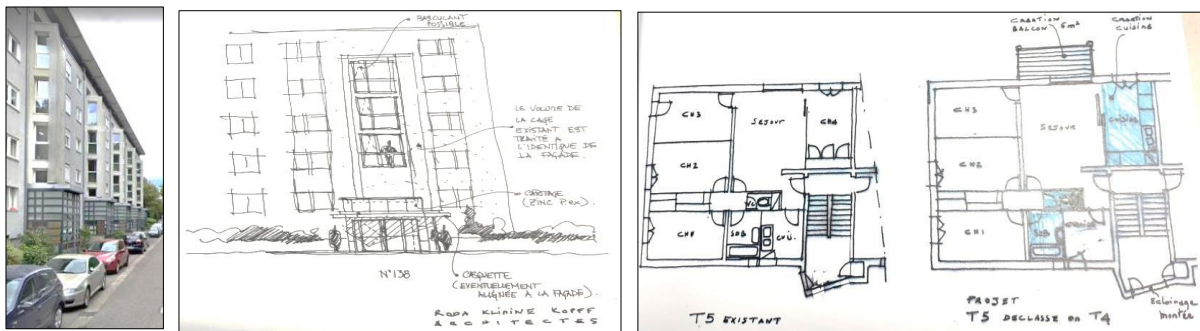 BASCULANT
POSSIBLE
LE VOLUME DE
LA CAGE
EXISTANT EST
TRAITÉ A
L'IDENTIQUE DE
LA FAÇADE.
CAPOTAGE
(ZINC P.ex).
N°138
CASQUETTE
(EVENTUELLEMENT
ALIGNÉE A LA FAÇADE).
RODA KLININE KOPFF
ARCHITECTES
CH3
SEJOUR
CH4
CH2
WC
CH1
SDB
CUI.
T5 EXISTANT
CREATION
BALCON 6m²
CREATION
CUISINE
CH3
SEJOUR
CUISINE
CH2
CH1
SDB
Eclairage
montée
PROJET
T5 DECLASSE en T4